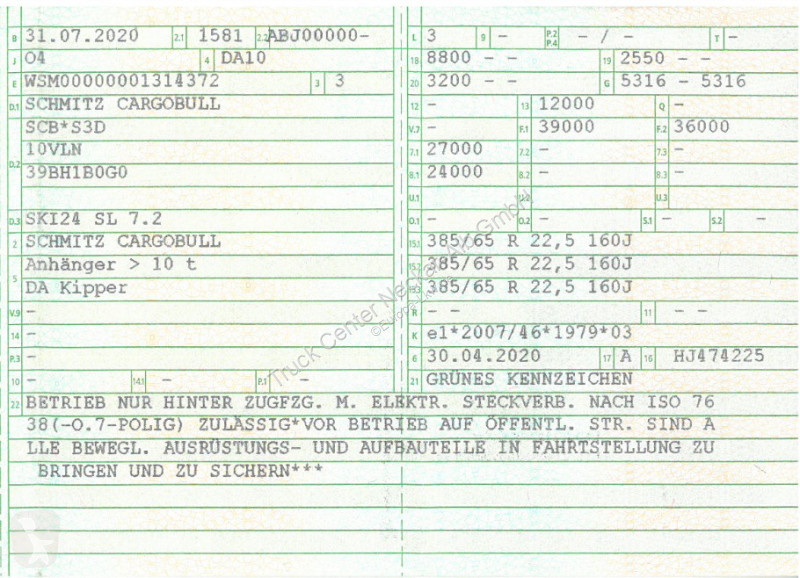 B 31.07.2020 2.1 1581 2.2 ABJ00000-
J 04 4 DA10
E WSM00000001314372 3 3
D.1 SCHMITZ CARGOBULL
SCB*S3D
D.2 10VLN
39BH1B0G0
D.3 SKI24 SL 7.2
2 SCHMITZ CARGOBULL
5 Anhänger > 10 t
DA Kipper
V.9 -
14 -
P.3 -
10 - 14.1 - P.1 -
L 3 9 - - P.2 P.4 - / - T -
18 8800 - - 19 2550 - -
20 3200 - - G 5316 - 5316
12 - 13 12000 Q -
V.7 - F.1 39000 F.2 36000
7.1 27000 7.2 - 7.3 -
8.1 24000 8.2 - 8.3 -
U.1 U.2 U.3
O.1 - O.2 - S.1 - S.2 -
15.1 385/65 R 22,5 160J
15.2 385/65 R 22,5 160J
15.3 385/65 R 22,5 160J
R - - 11 - -
K e1*2007/46*1979*03
6 30.04.2020 17 A 16 HJ474225
21 GRÜNES KENNZEICHEN
22 BETRIEB NUR HINTER ZUGFZG. M. ELEKTR. STECKVERB. NACH ISO 76
38(-O.7-POLIG) ZULÄSSIG*VOR BETRIEB AUF ÖFFENTL. STR. SIND A
LLE BEWEGL. AUSRÜSTUNGS- UND AUFBAUTEILE IN FAHRTSTELLUNG ZU
BRINGEN UND ZU SICHERN***
Truck Center Neckar-Alb GmbH